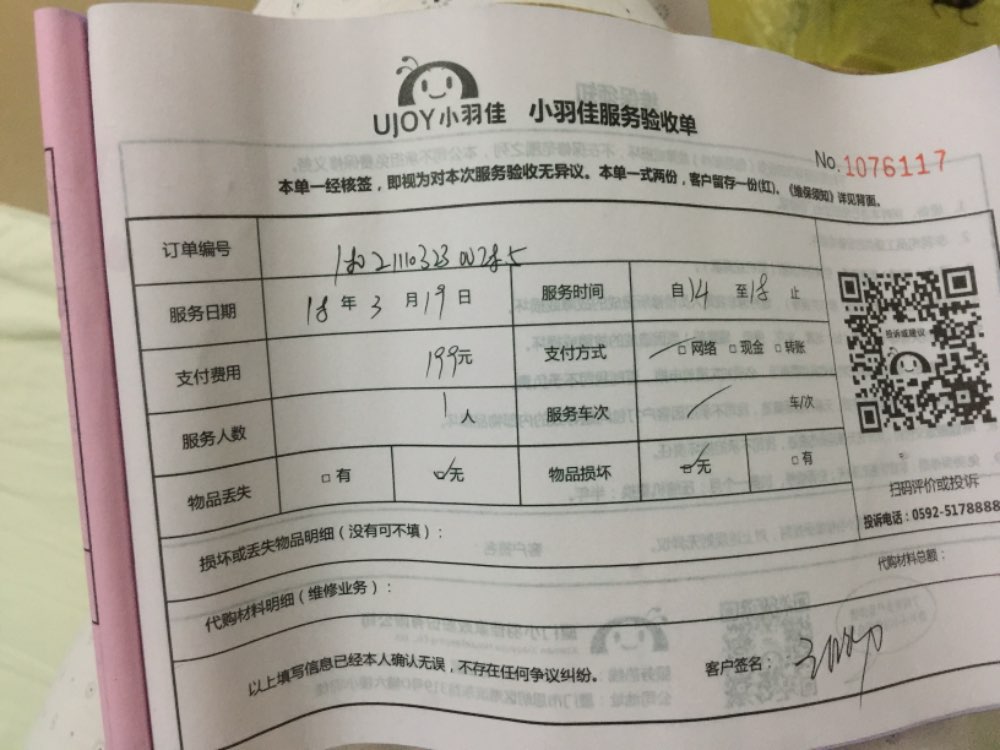 UJOY小羽佳 小羽佳服务验收单
No.1076117
本单一经核签，即视为对本次服务验收无异议。本单一式两份，客户留存一份(红)。《维保须知》详见背面。
订单编号
服务日期 18年3月19日 服务时间 自14至18止
支付费用 199元 支付方式 □网络 □现金 □转账
服务人数 1人 服务车次 车/次
物品丢失 □有 □无 物品损坏 □无 □有
投诉或建议
扫码评价或投诉
投诉电话：0592-5178888
损坏或丢失物品明细（没有可不填）：
代购材料明细（维修业务）： 代购材料总额：
以上填写信息已经本人确认无误，不存在任何争议纠纷。 客户签名：